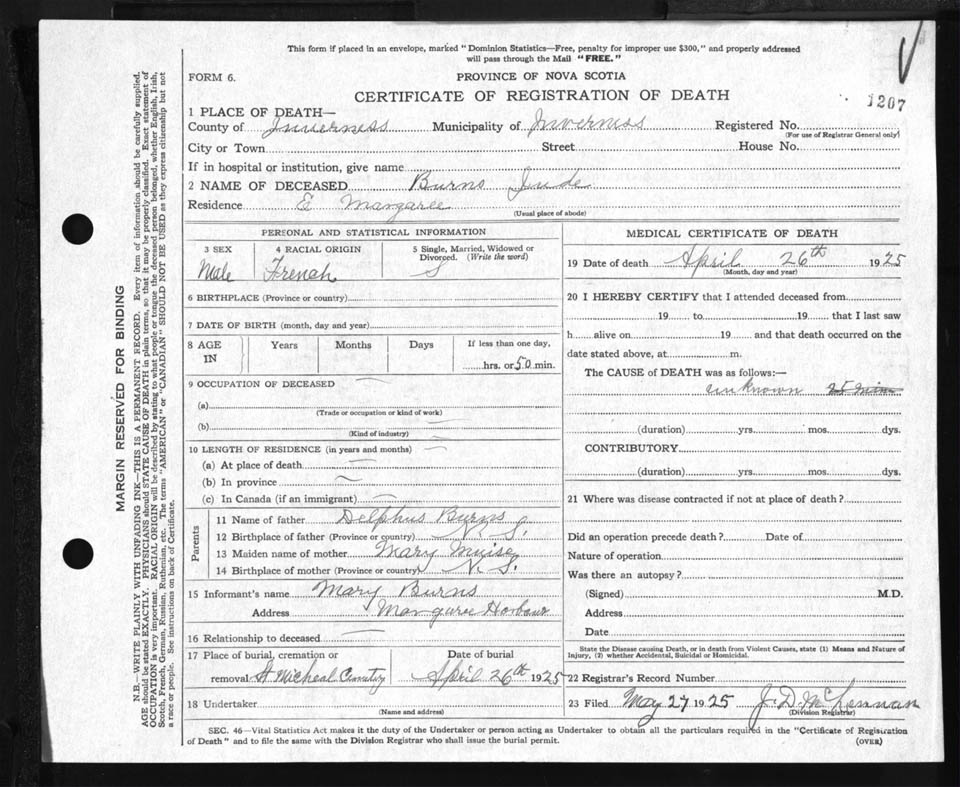 This form if placed in an envelope, marked "Dominion Statistics—Free, penalty for improper use $300," and properly addressed
will pass through the Mail "FREE."
FORM 6.
PROVINCE OF NOVA SCOTIA
CERTIFICATE OF REGISTRATION OF DEATH
1207
1 PLACE OF DEATH—
County of Inverness Municipality of Inverness Registered No.
(For use of Registrar General only)
City or Town Street House No.
If in hospital or institution, give name
2 NAME OF DECEASED Burns Jude
Residence E Margaree
(Usual place of abode)
PERSONAL AND STATISTICAL INFORMATION
3 SEX 4 RACIAL ORIGIN 5 Single, Married, Widowed or
Divorced. (Write the word)
Male French S
6 BIRTHPLACE (Province or country)
7 DATE OF BIRTH (month, day and year)
8 AGE IN Years Months Days If less than one day,
hrs. or 50 min.
9 OCCUPATION OF DECEASED
(a)
(Trade or occupation or kind of work)
(b)
(Kind of industry)
10 LENGTH OF RESIDENCE (in years and months)
(a) At place of death
(b) In province
(c) In Canada (if an immigrant)
Parents
11 Name of father Delphus Burns
12 Birthplace of father (Province or country) N. S.
13 Maiden name of mother Mary Muise
14 Birthplace of mother (Province or country) N. S.
15 Informant's name Mary Burns
Address Margaree Harbour
16 Relationship to deceased
17 Place of burial, cremation or Date of burial
removal St Micheal Cemetry April 26th 1925
18 Undertaker
(Name and address)
MEDICAL CERTIFICATE OF DEATH
19 Date of death April 26th 1925
(Month, day and year)
20 I HEREBY CERTIFY that I attended deceased from
19 to 19 that I last saw
h alive on 19 and that death occurred on the
date stated above, at m.
The CAUSE of DEATH was as follows:—
unknown 25 min
(duration) yrs. mos. dys.
CONTRIBUTORY
(duration) yrs. mos. dys.
21 Where was disease contracted if not at place of death?
Did an operation precede death? Date of
Nature of operation
Was there an autopsy?
(Signed) M.D.
Address
Date
State the Disease causing Death, or in death from Violent Causes, state (1) Means and Nature of
Injury, (2) whether Accidental, Suicidal or Homicidal.
22 Registrar's Record Number
23 Filed May 27 1925 J. D. McLennan
(Division Registrar)
SEC. 46—Vital Statistics Act makes it the duty of the Undertaker or person acting as Undertaker to obtain all the particulars required in the "Certificate of Registration
of Death" and to file the same with the Division Registrar who shall issue the burial permit.
(OVER)
MARGIN RESERVED FOR BINDING
N.B.—WRITE PLAINLY WITH UNFADING INK—THIS IS A PERMANENT RECORD. Every item of information should be carefully supplied.
AGE should be stated EXACTLY. PHYSICIANS should STATE CAUSE OF DEATH in plain terms, so that it may be properly classified. Exact statement of
OCCUPATION is very important. RACIAL ORIGIN will be described by stating to what people or tongue the deceased person belonged, whether English, Irish,
Scotch, French, German, Russian, Ruthenian, etc. The terms "AMERICAN" or "CANADIAN" SHOULD NOT BE USED as they express citizenship but not
a race or people. See instructions on back of Certificate.